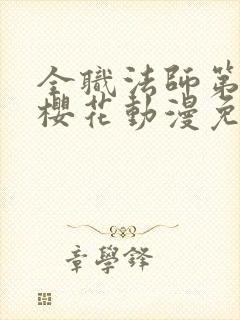 全職法師第
櫻花動漫免
章學鋒